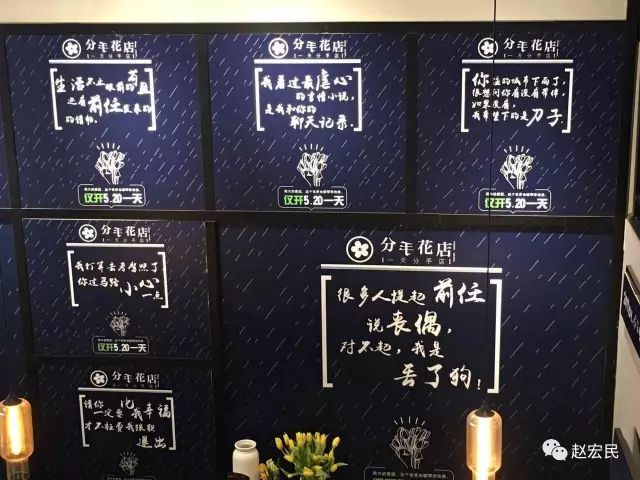 分手花店
一天分手店
生活不止眼前的苟且
还有前任发来的
的请帖.
仅开5.20一天
分手花店
一天分手店
我看过最虐心
的言情小说,
是我和你的
聊天记录
仅开5.20一天
分手花店
一天分手店
你住的城市下雨了,
很想问你有没有带伞
如果没看,
我希望下的是刀子
仅开5.20一天
分手花店
一天分手店
我打算去考驾照了
你过马路小心一点
仅开5.20一天
分手花店
一天分手店
很多人提起前任
说丧偶,
对不起,我是
丢了狗!
分手花店
一天分手店
请你一定要比我幸福
才不枉费我狼狈
退出
赵宏民